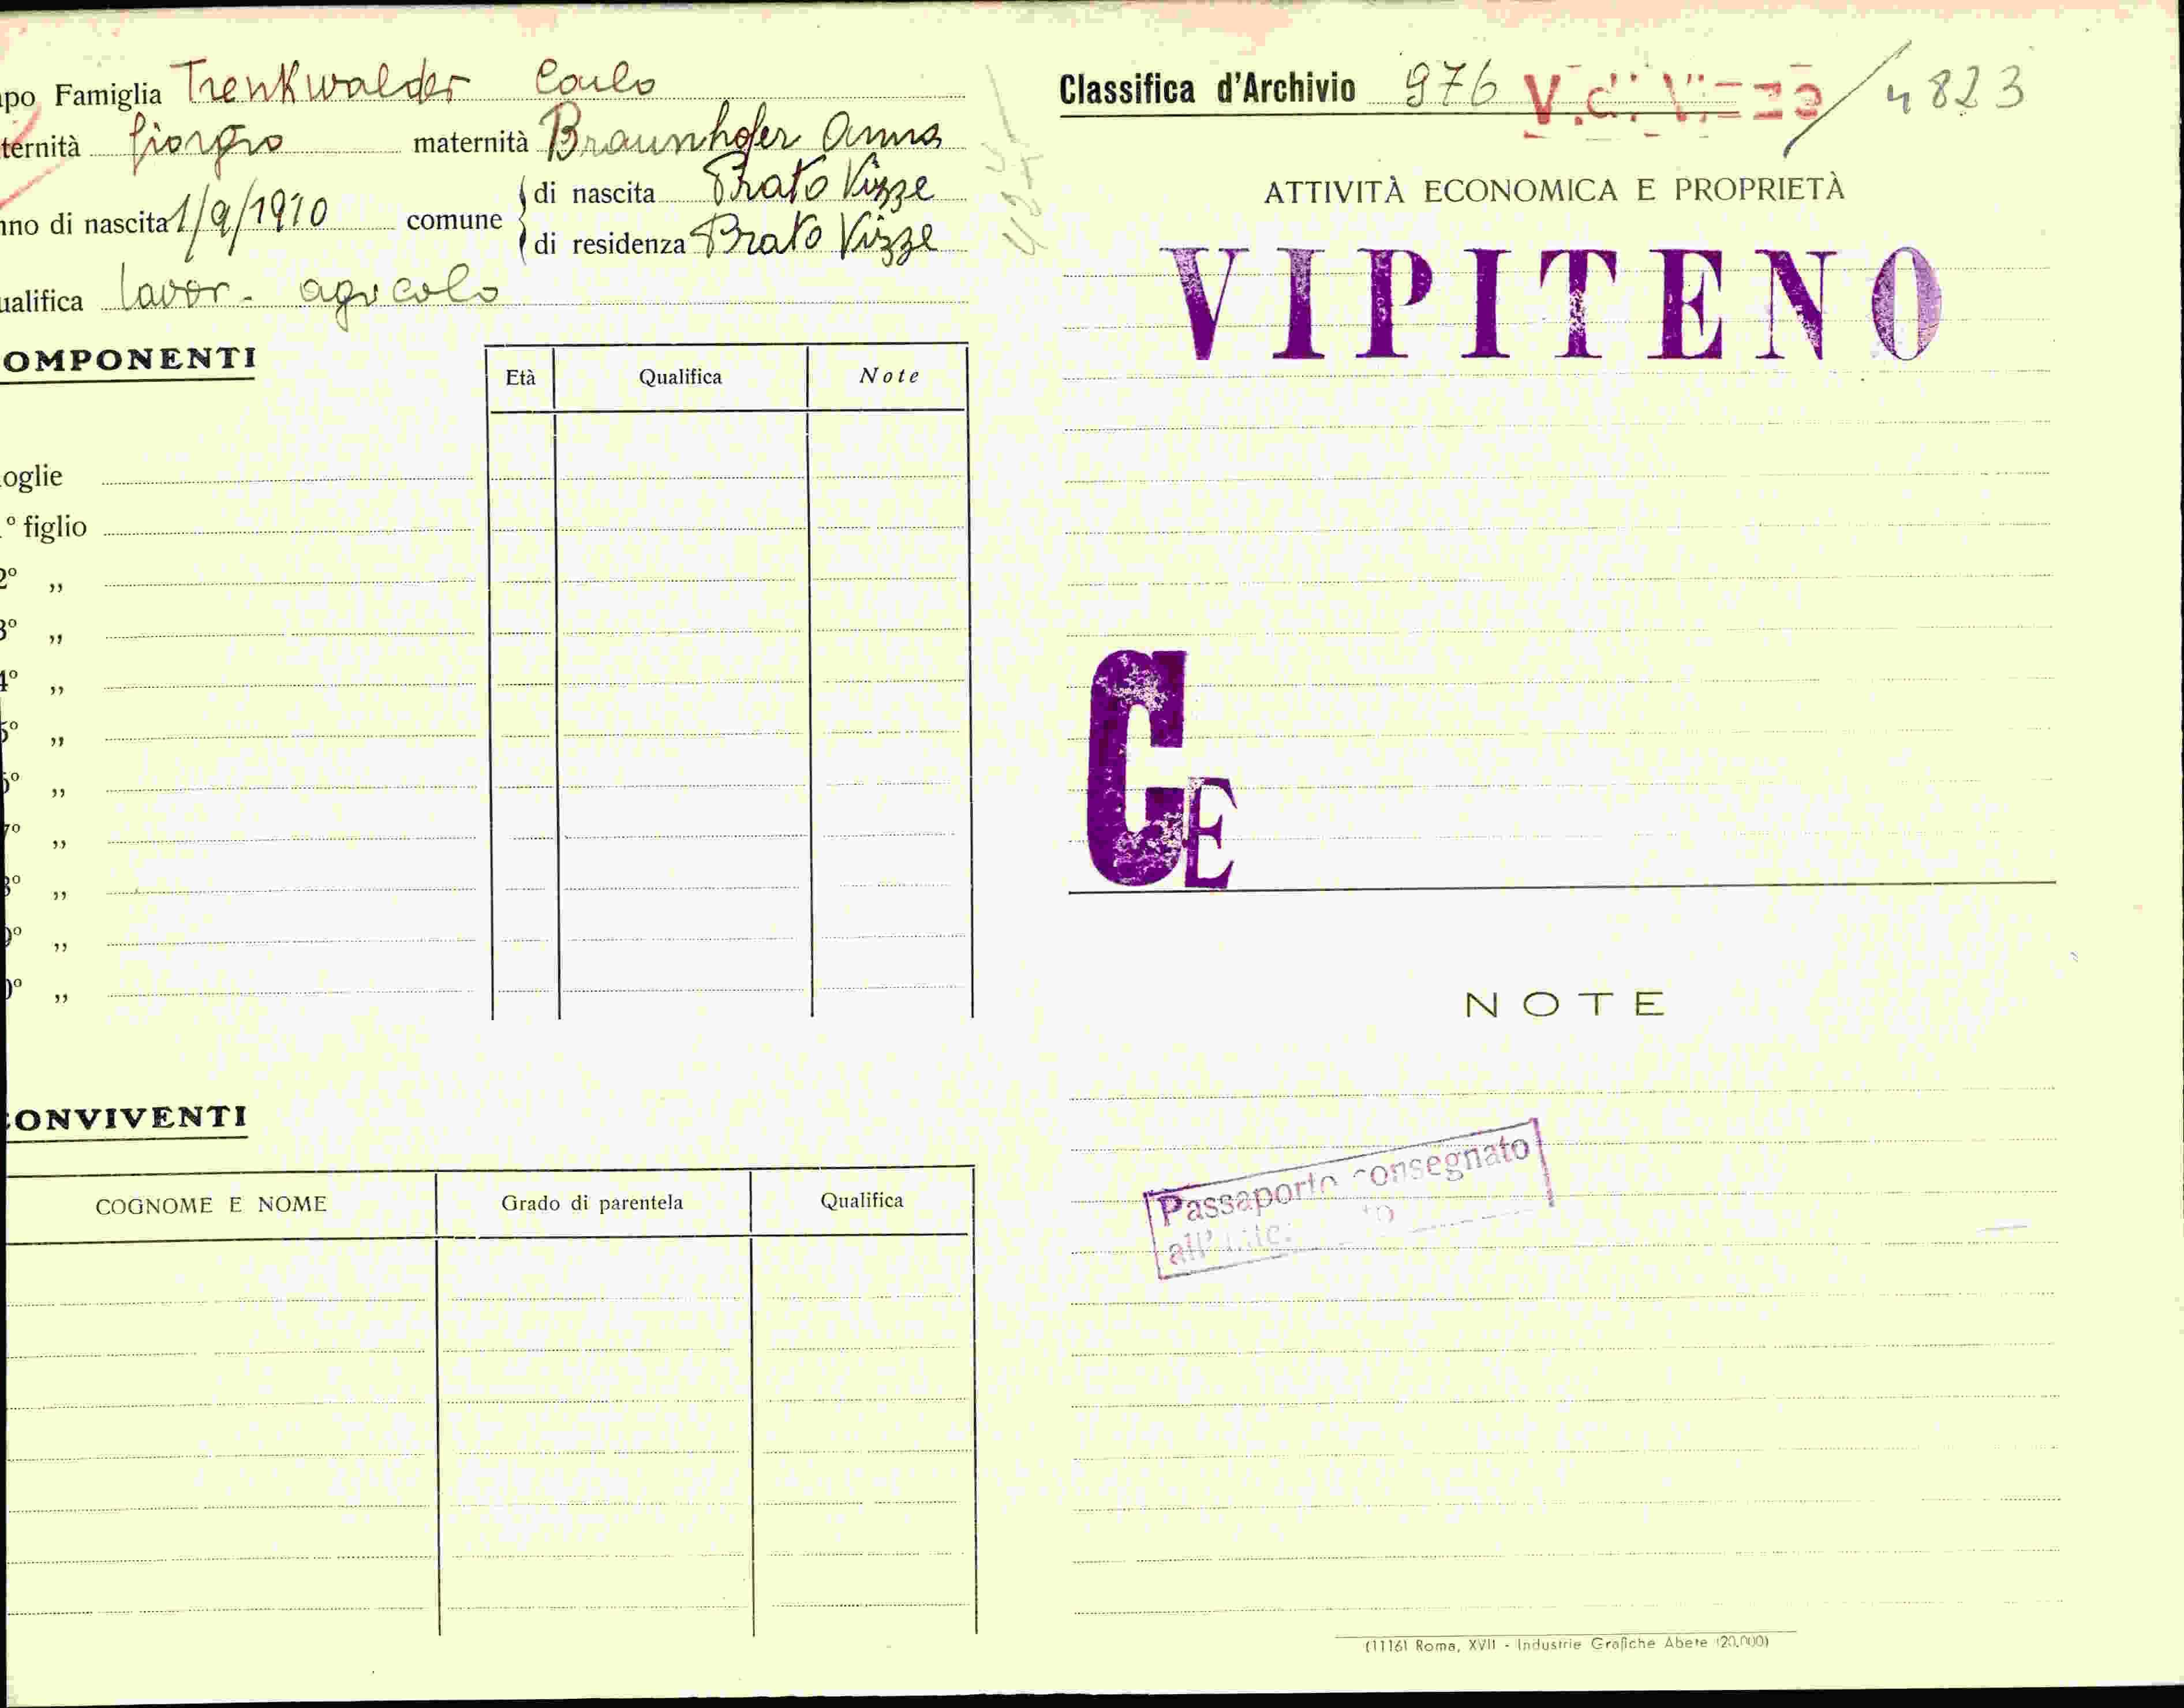 po Famiglia Trenkwalder Carlo
ternità Giorgio maternità Braunhofer Anna
nno di nascita 1/9/1910 comune di nascita Prato Vizze
di residenza Prato Vizze
ualifica lavor. agricolo
OMPONENTI
Età Qualifica Note
oglie
° figlio
2° „
3° „
4° „
5° „
6° „
7° „
8° „
9° „
0° „
CONVIVENTI
COGNOME E NOME Grado di parentela Qualifica
Classifica d'Archivio 976 V.di Vizze / 4823
ATTIVITÀ ECONOMICA E PROPRIETÀ
VIPITENO
GE
NOTE
Passaporto consegnato
all'
(1116) Roma, XVII - Industrie Grafiche Abete (20.000)